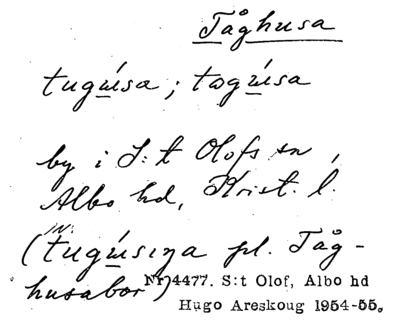 Tåghusa
tugú̲sa ; tøgú̲sa
by i S:t Olofs sn,
Albo hd, Krist. l.
(tugú̲sıŋa pl. Tåg-
husabor)
Nr 4477. S:t Olof, Albo hd
Hugo Areskoug 1954-55.